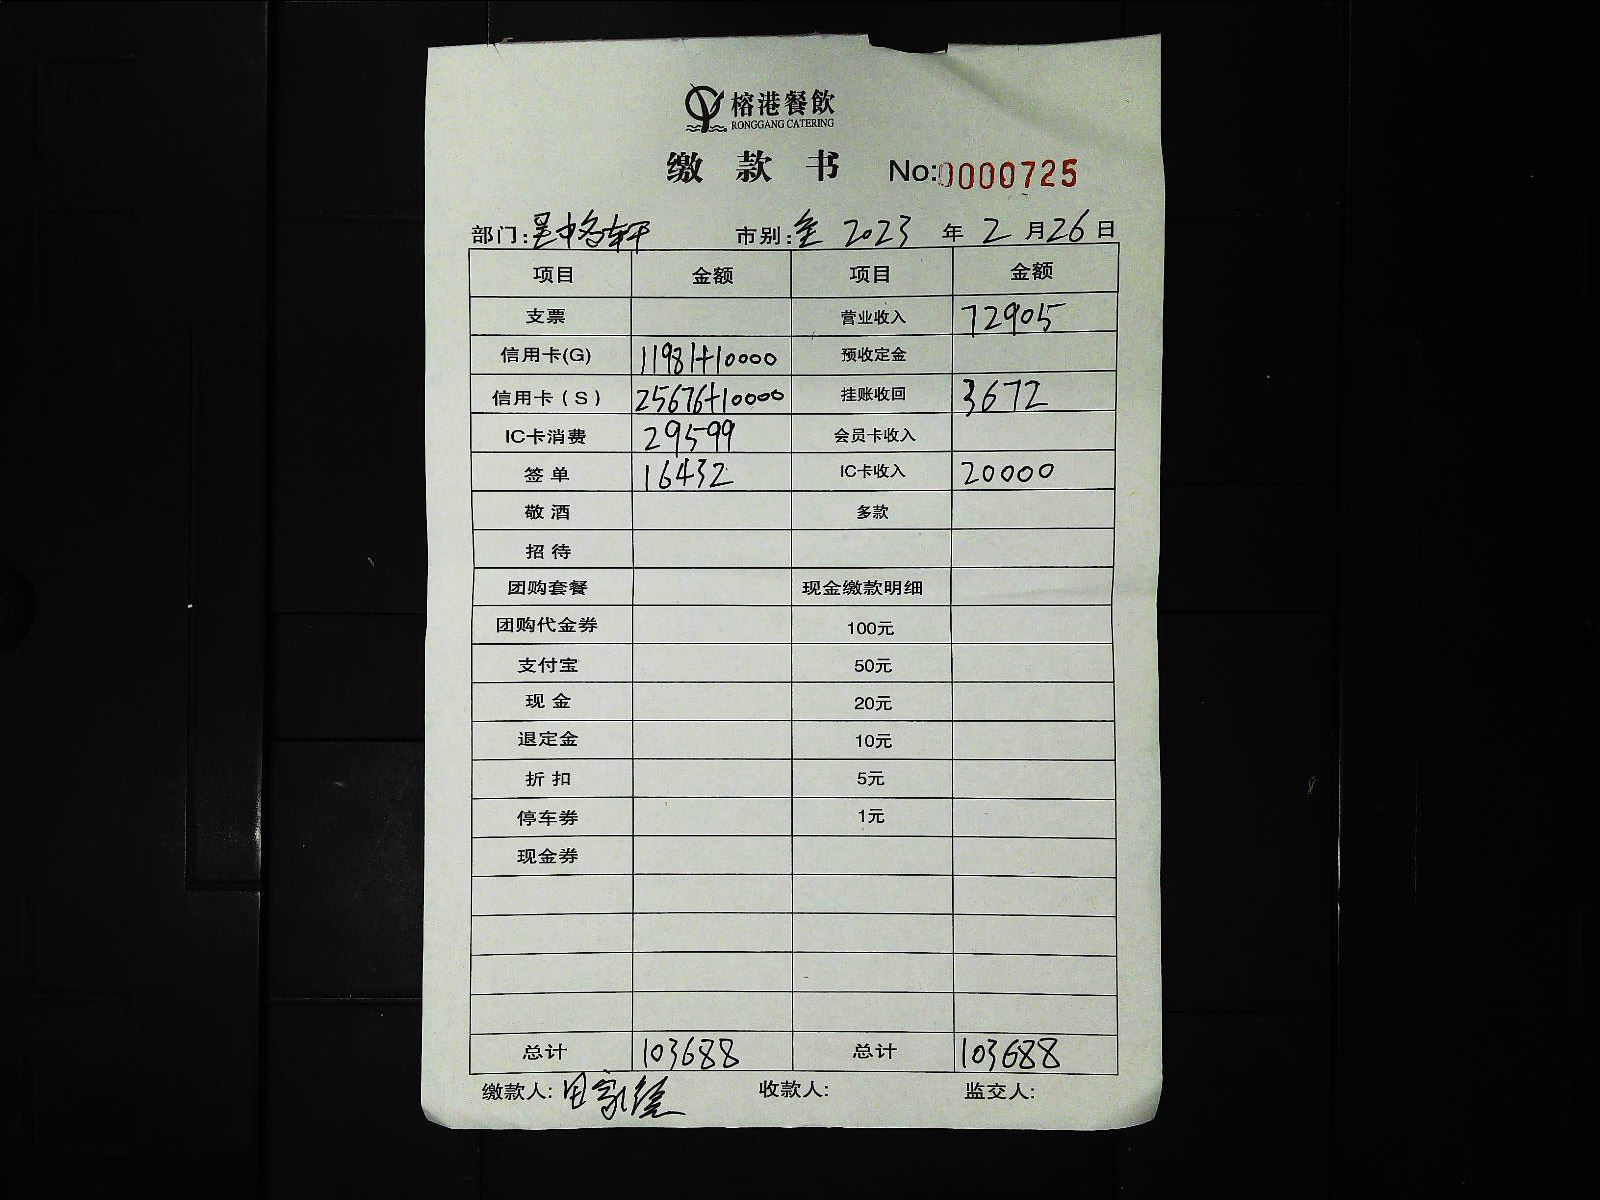 榕港餐飲
RONGGANG CATERING
缴款书 No:0000725
部门: 市别:全 2023年2月26日
项目 金额 项目 金额
支票 营业收入 72905
信用卡(G) 11981+10000 预收定金
信用卡(S) 25676+10000 挂账收回 3672
IC卡消费 29599 会员卡收入
签单 16432 IC卡收入 20000
敬酒 多款
招待
团购套餐 现金缴款明细
团购代金券 100元
支付宝 50元
现金 20元
退定金 10元
折扣 5元
停车券 1元
现金券
总计 103688 总计 103688
缴款人:田家 收款人: 监交人: